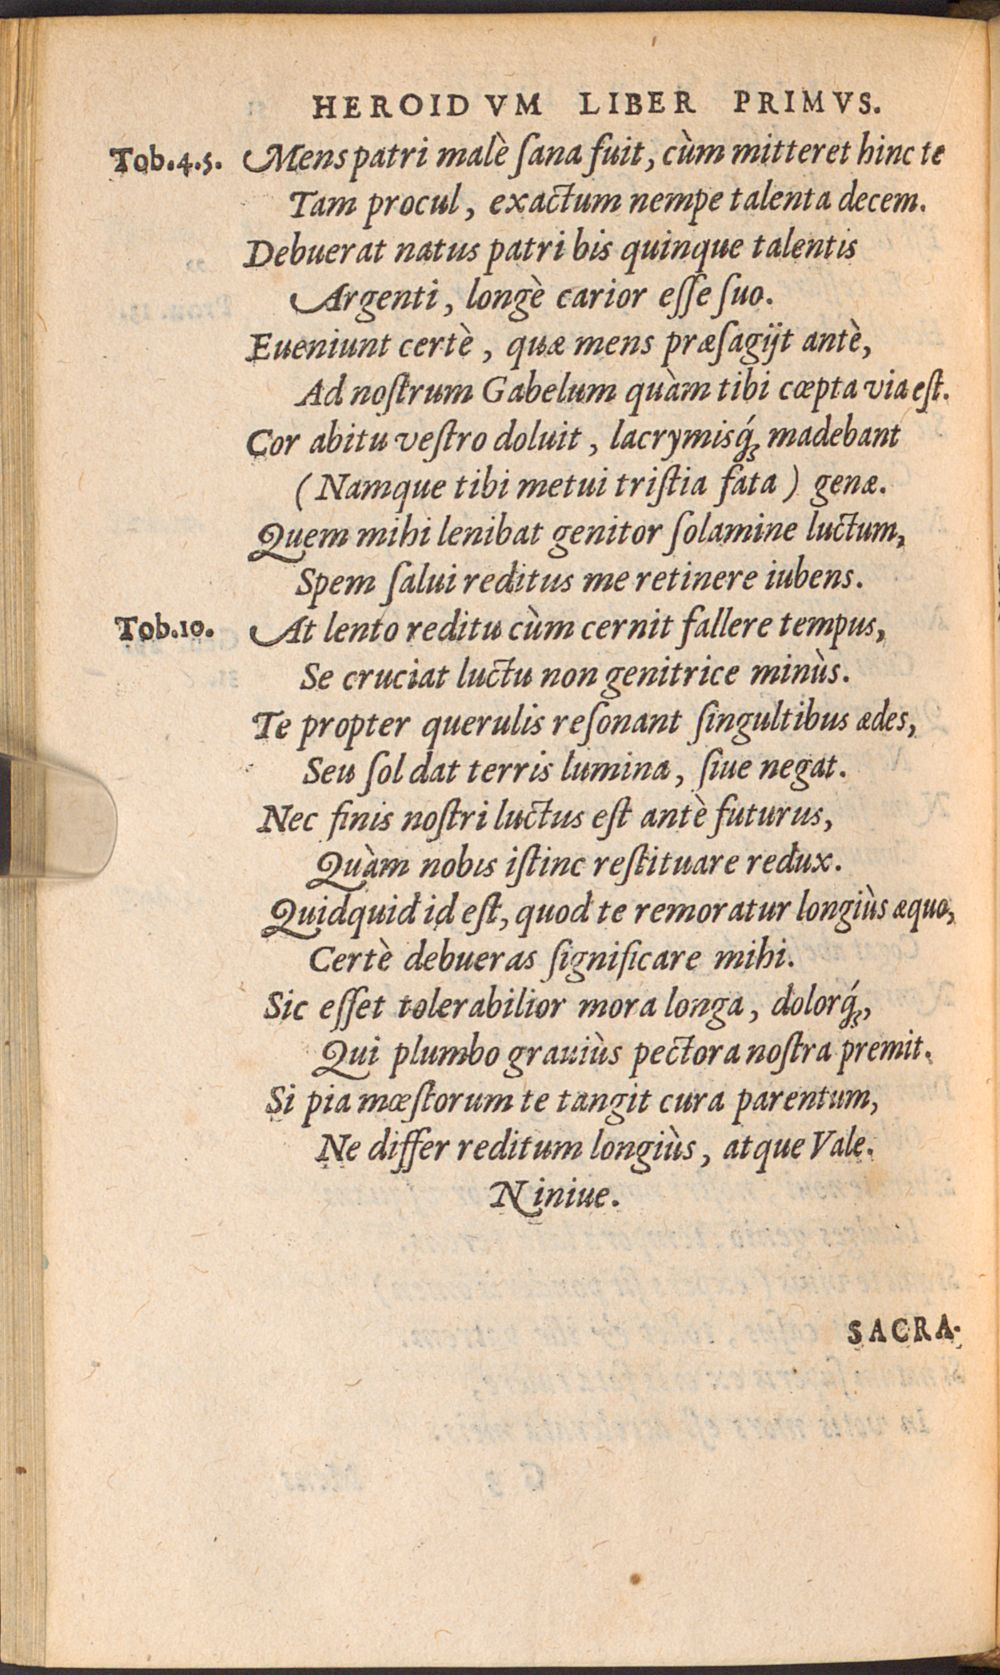 HEROIDVM LIBER PRIMVS.
Tob.4.5. Mens patri malè ſana fuit, cùm mitteret hinc te
Tam procul, exactum nempe talenta decem.
Debuerat natus patri bis quinque talentis
Argenti, longè carior eſſe ſuo.
Eueniunt certè, quæ mens præſagijt antè,
Ad noſtrum Gabelum quàm tibi cœpta via eſt.
Cor abitu veſtro doluit, lacrymisq́; madebant
(Namque tibi metui triſtia fata) genæ.
Quem mihi lenibat genitor ſolamine luctum,
Spem ſalui reditus me retinere iubens.
Tob.10. At lento reditu cùm cernit fallere tempus,
Se cruciat luctu non genitrice minùs.
Te propter querulis reſonant ſingultibus ædes,
Seu ſol dat terris lumina, ſiue negat.
Nec finis noſtri luctus eſt antè futurus,
Quàm nobis iſtinc reſtituare redux.
Quidquid id eſt, quod te remoratur longiùs æquo,
Certè debueras ſignificare mihi.
Sic eſſet tolerabilior mora longa, dolorq́;,
Qui plumbo grauiùs pectora noſtra premit.
Si pia mœſtorum te tangit cura parentum,
Ne differ reditum longiùs, atque Vale.
Niniue.
SACRA-